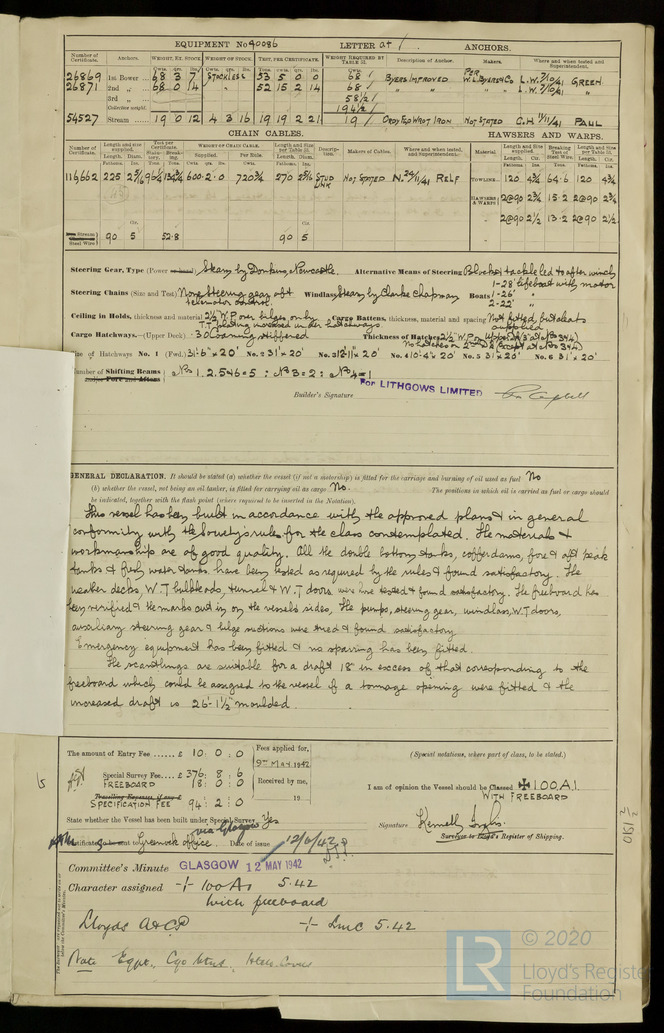 EQUIPMENT No 40086 LETTER at / ANCHORS.
Number of Certificate. Anchors. WEIGHT, EX. STOCK WEIGHT OF STOCK. TEST, PER CERTIFICATE. WEIGHT REQUIRED BY TABLE 31. Description of Anchor. Makers. Where and when tested and Superintendent.
26869 1st Bower 68 3 7 STOCKLESS 53 5 0 0 68 / BYERS IMPROVED PER W.L. BYERS & Co L.W. 7/10/41 GREEN
26871 2nd „ 68 0 14 „ 52 15 2 14 68 / „ „ L.W. 7/10/41 „
3rd „ 58 1/2 /
Collective weight. 194 1/2 /
54527 Stream 19 0 12 4 3 16 19 19 2 21 19 / ORDY FGD WROT IRON NOT STATED C.H. 11/11/41 PAUL
CHAIN CABLES. HAWSERS AND WARPS.
Number of Certificate. Length and size supplied. Test per Certificate. WEIGHT OF CHAIN CABLE. Length and size per Table 31. Description. Makers of Cables. Where and when tested, and Superintendent. Material Length and size supplied. Breaking Test of Steel Wire. Length and size per Table 31.
Fathoms. Diam. Supplied. Per Rule. Length. Diam.
116662 225 2 5/16 720 3/4 270 2 5/16 STUD LINK NOT STATED N. 24/11/41 RELF TOWLINE 120 4 3/4 64·6 120 4 3/4
HAWSERS & WARPS 2@90 2 3/4 15·2 2@90 2 3/4
2@90 2 1/2 13·2 2@90 2 1/2
Steel Wire 90 5 52·8 90 5
Steering Gear, Type (Power or hand) Steam by Donkin, Newcastle. Alternative Means of Steering Blocks & tackle led to after winch
1-28' lifeboat with motor
Steering Chains (Size and Test) None. Steering gear aft telemotor control. Windlass Steam by Clarke Chapman Boats 1-26' „
2-22' „
Ceiling in Holds, thickness and material 2 1/2" W.P. over bilges only Cargo Battens, thickness, material and spacing Not fitted, but cleats supplied
T.T. plating increased in way hatchways
Cargo Hatchways.—(Upper Deck) 30" Coaming stiffened Thickness of Hatches 2 1/2" W.P.
Size of Hatchways No. 1 (Fwd.) 31'6" x 20' No. 2 31' x 20' No. 3 12'11" x 20' No. 4 10'4" x 20' No. 5 31' x 20' No. 6 31' x 20'
Number of Shifting Beams and/or Fore and Afters Nos 1.2.5&6=5 ; No 3=2 ; No 4=1
For LITHGOWS LIMITED
Builder's Signature
GENERAL DECLARATION. It should be stated (a) whether the vessel (if not a motorship) is fitted for the carriage and burning of oil used as fuel No
(b) whether the vessel, not being an oil tanker, is fitted for carrying oil as cargo No. The positions in which oil is carried as fuel or cargo should
be indicated, together with the flash point (where required to be inserted in the Notation).
This vessel has been built in accordance with the approved plans & in general
conformity with the Society's rules for the class contemplated. The materials &
workmanship are of good quality. All the double bottom tanks, cofferdams, fore & aft peak
tanks & fresh water tanks have been tested as required by the rules & found satisfactory. The
weather decks, W.T. bulkheads, tunnel & W.T. doors were hose tested & found satisfactory. The freeboard has
been verified & the marks cut in on the vessels sides, The pumps, steering gear, windlass, W.T. doors,
auxiliary steering gear & bilge suctions were tried & found satisfactory
Emergency equipment has been fitted & no sparring has been fitted.
The scantlings are suitable for a draft 18" in excess of that corresponding to the
freeboard which could be assigned to the vessel if a tonnage opening were fitted & the
increased draft is 26'-1 1/2" moulded.
The amount of Entry Fee £ 10 : 0 : 0 Fees applied for, (Special notations, where part of class, to be stated.)
9TH MAY. 1942
Special Survey Fee £ 376 : 8 : 6 Received by me, I am of opinion the Vessel should be Classed ✠ 100.A1.
FREEBOARD 18 : 0 : 0 WITH FREEBOARD
Travelling Expenses, if any £ 19
SPECIFICATION FEE 94 : 2 : 0
State whether the Vessel has been built under Special Survey Yes Signature
via Glasgow Surveyor to Lloyd's Register of Shipping.
Certificate to be sent to Greenock office. Date of issue 12/6/42
Committee's Minute GLASGOW 12 MAY 1942
Character assigned + 100A1 5.42
With freeboard
Lloyds A&CP + LMC 5.42
Note Eqpt.,
LR © 2020
Lloyd's Register
Foundation